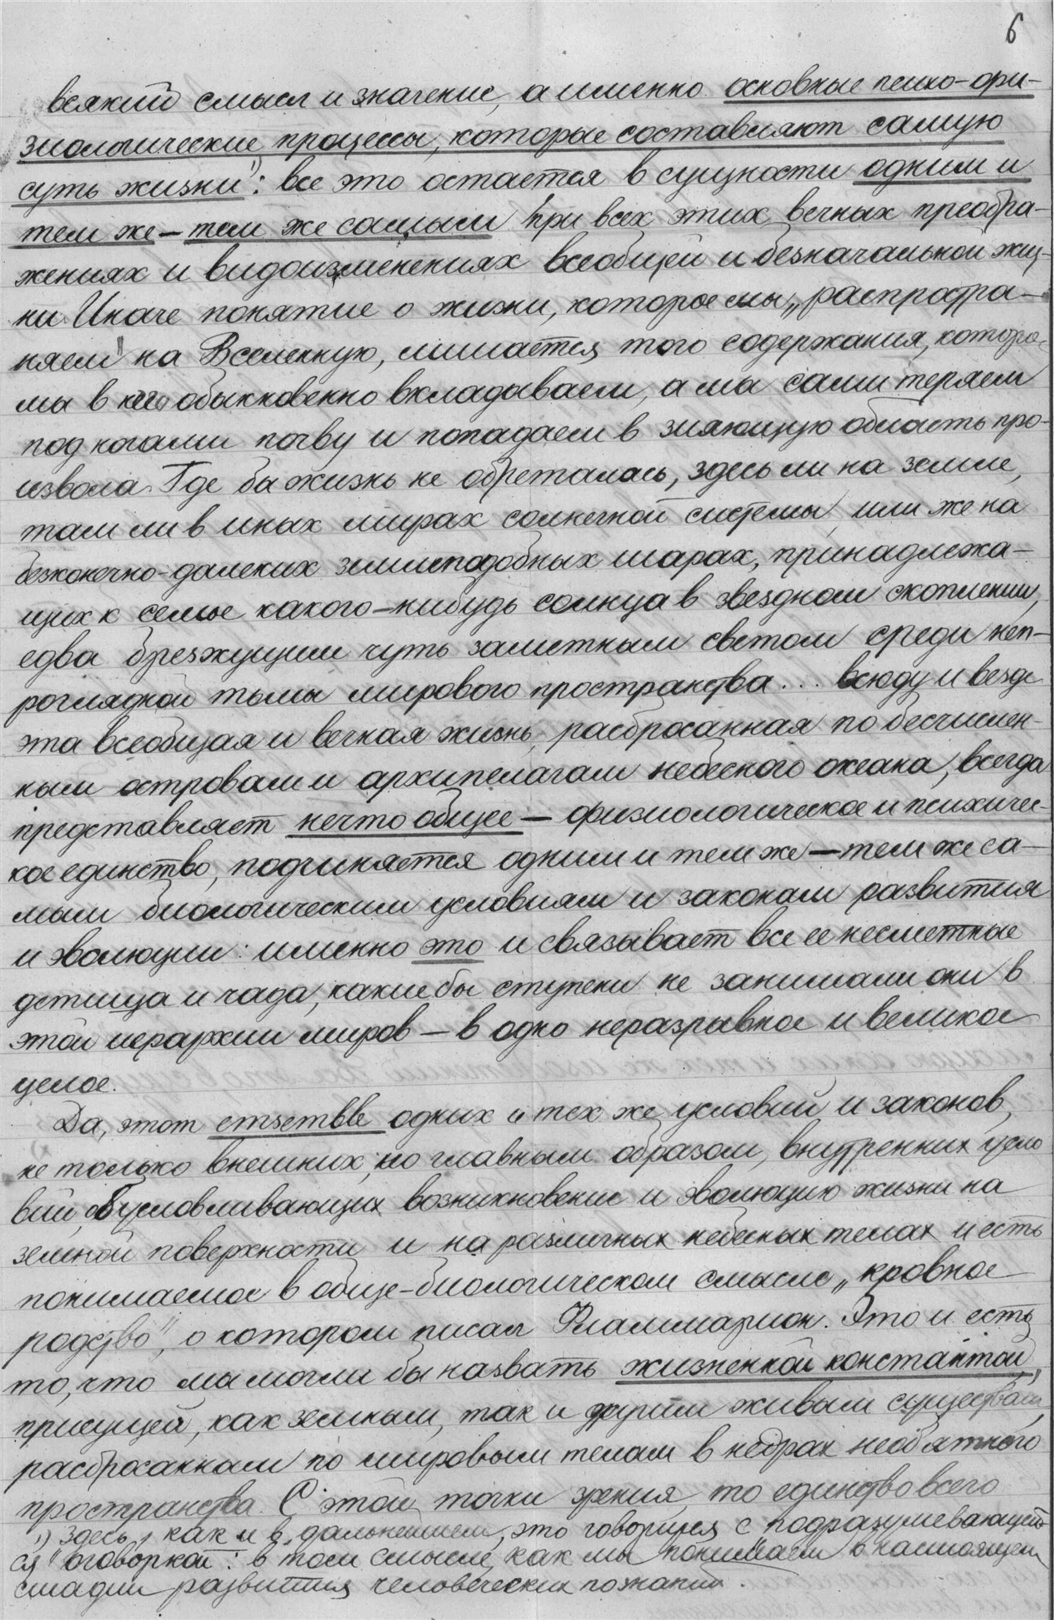 6
всякий смысл и значение, а именно основные психо-фи-
зиологические процессы, которые составляют самую
суть жизни¹⁾: все это остается в сущности одним и
тем же — тем же самым при всех этих вечных преобра-
жениях и видоизменениях всеобщей и безначальной жиз-
ни. Иначе понятие о жизни, которое мы „распростра-
няем" на Вселенную, лишается того содержания, которое
мы в него обыкновенно вкладываем, а мы сами теряем
под ногами почву и попадаем в зияющую область про-
извола. Где бы жизнь не обреталась, здесь ли на земле,
там ли в иных мирах солнечной системы, или же на
безконечно-далеких землеподобных шарах, принадлежа-
щих к семье какого-нибудь солнца в звездном скоплении,
едва брезжущим чуть заметным светом среди неп-
роглядной тьмы мирового пространства... всюду и везде
эта всеобщая и вечная жизнь, разбросанная по бесчислен-
ным островам и архипелагам небесного океана, всегда
представляет нечто общее — физиологическое и психичес-
кое единство, подчиняется одним и тем же — тем же са-
мым биологическим условиям и законам развития
и эволюции: именно это и связывает все ее несметные
детища и чада, какие бы ступени не занимали они в
этой иерархии миров — в одно неразрывное и великое
целое.
Да, этот emsemble одних и тех же условий и законов,
не только внешних, но главным образом, внутренних усло
вий, обусловливающих возникновение и эволюцию жизни на
земной поверхности и на различных небесных телах и есть
понимаемое в обще-биологическом смысле „кровное
родство", о котором писал Фламмарион. Это и есть
то, что мы могли бы назвать жизненной константой,
присущей, как земным, так и другим живым существам,
разбросанным по мировым телам в недрах необятного
пространства. С этой точки зрения, то единство всего
¹⁾ здесь, как и в дальнейшем, это говорится с подразумевающей-
ся оговоркой: в том смысле, как мы понимаем в настоящем
стадии развития человеческих познаний.